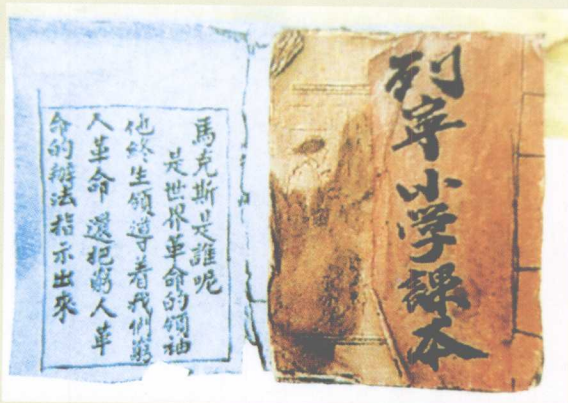 列宁小学課本
馬克斯是誰呢
是世界革命的領袖
他終生領導着我們窮
人革命還把窮人革
命的辦法指示出來